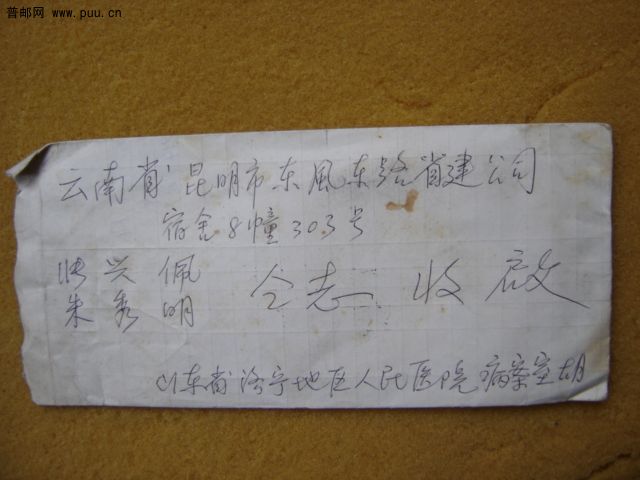 普邮网 www.puu.cn
云南省昆明市东風东路省建公司
宿舍8幢303号
张兴佩
朱秀明
仝志收启
山东省济宁地区人民医院病案室胡